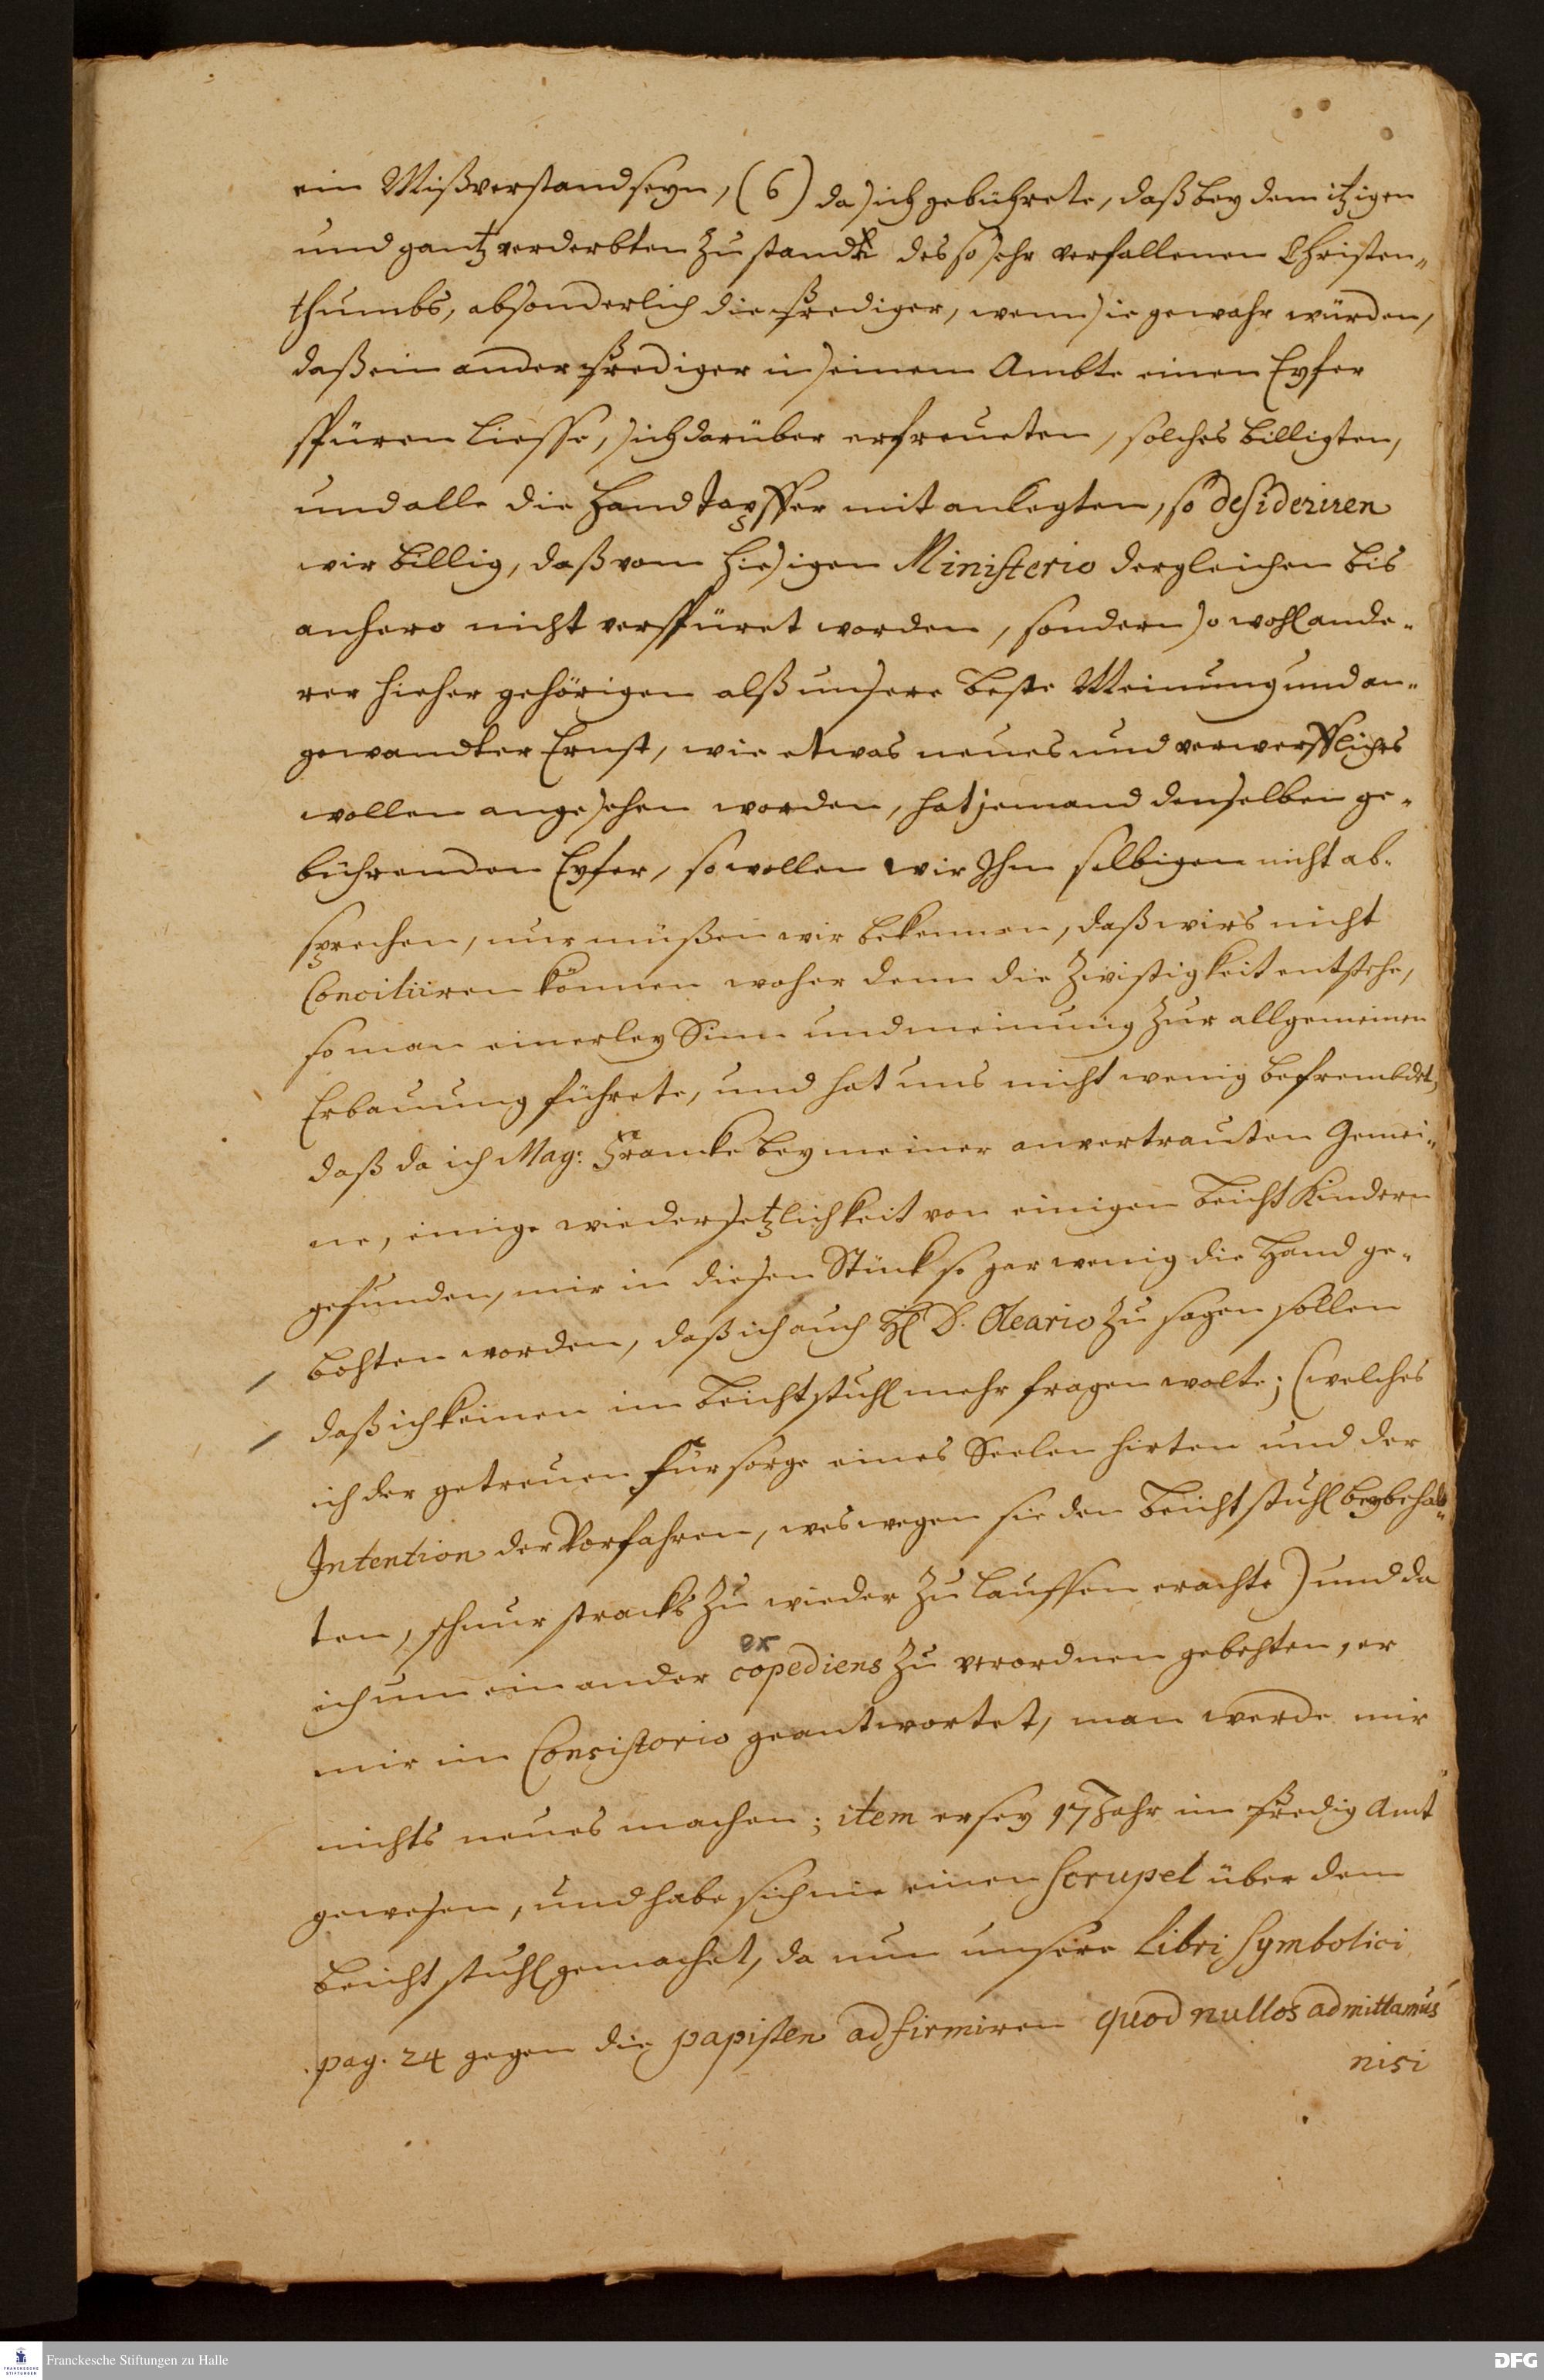 ein Mißverstand seyn, (6) da sich gebührete, daß bey dem itzigen
und gantz verderbten Zustande des so sehr verfallenen Christen„
thumbs, absonderlich die Prediger, wenn sie gewahr würden,
daß ein ander Prediger in seinem Ambte einen Eyfer
spüren liesse, sich darüber erfreueten, solches billigten,
und alle die Hand tapffer mit anlegten, so desideriren
wir billig, daß vom hiesigen Ministerio dergleichen bis
anhero nicht verspüret worden, sondern so wohl ande-
rer hieher gehörigen alß unsere beste Meinung und an-
gewandter Ernst, wie etwas neues und verwerffliches
wollen angesehen werden, hat jemand denselben ge-
bührenden Eyfer, so wollen wir Ihm selbigen nicht ab-
sprechen, nur müßen wir bekennen, daß wirs nicht
Conciliiren können woher denn die Zwistigkeit entstehe,
so man einerley Sinn und meinung zur allgemeinen
Erbauung führete, und hat uns nicht wenig befrembdet,
daß da ich Mag: Francke bey meiner anvertrauten Gemei„
ne, einige wiedersetzlichkeit von einigen Beicht Kindern
gefunden, mir in diesen Stück so gar wenig die Hand ge-
bohten worden, daß ich auch H D. Oleario zu sagen sollen
daß ich keinen im Beichtstuhl mehr fragen wolte; (welches
ich der getreuen fürsorge eines Seelen hirten und der
Intention der Vorfahren, weswegen sie den Beichtstuhl beybehal„
ten, schnur stracks zu wieder zu lauffen erachte) und da
ich um ein ander copediens zu verordnen gebehten, er
ex
mir im Consistorio geantwortet, man werde mir
nichts neues machen; item er sey 17 Jahr im Predig Amt
gewesen, und habe sich nie einen Scrupel über dem
Beichtstuhl gemachet, da nun unsere Libri Symbolici
pag. 24 gegen die papisten adfirmiren quod nullos admittamus
nisi
Franckesche Stiftungen zu Halle
FRANCKESCHE STIFTUNGEN
DFG